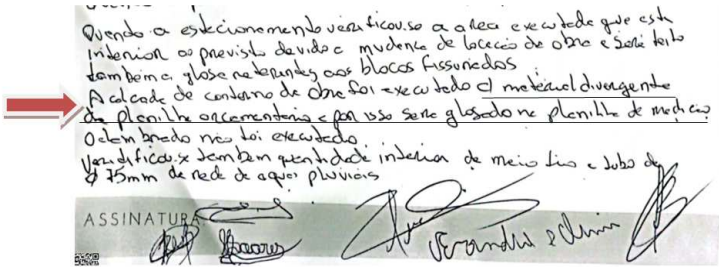 Quando a estacionamento verificou-se a area executada que esta
inferior ao previsto devido a mudança de locação da obra e será feito
também a glosa referentes aos blocos fissurados.
A calçada de contorno da obra foi executado c/ material divergente
da planilha orçamentária e por isso será glosado na planilha de medição
O alambrado não foi executado.
Verificou-se também quantidade inferior de meio fio e tubo de
Ø 75mm de rede de aguas pluviais
ASSINATURA